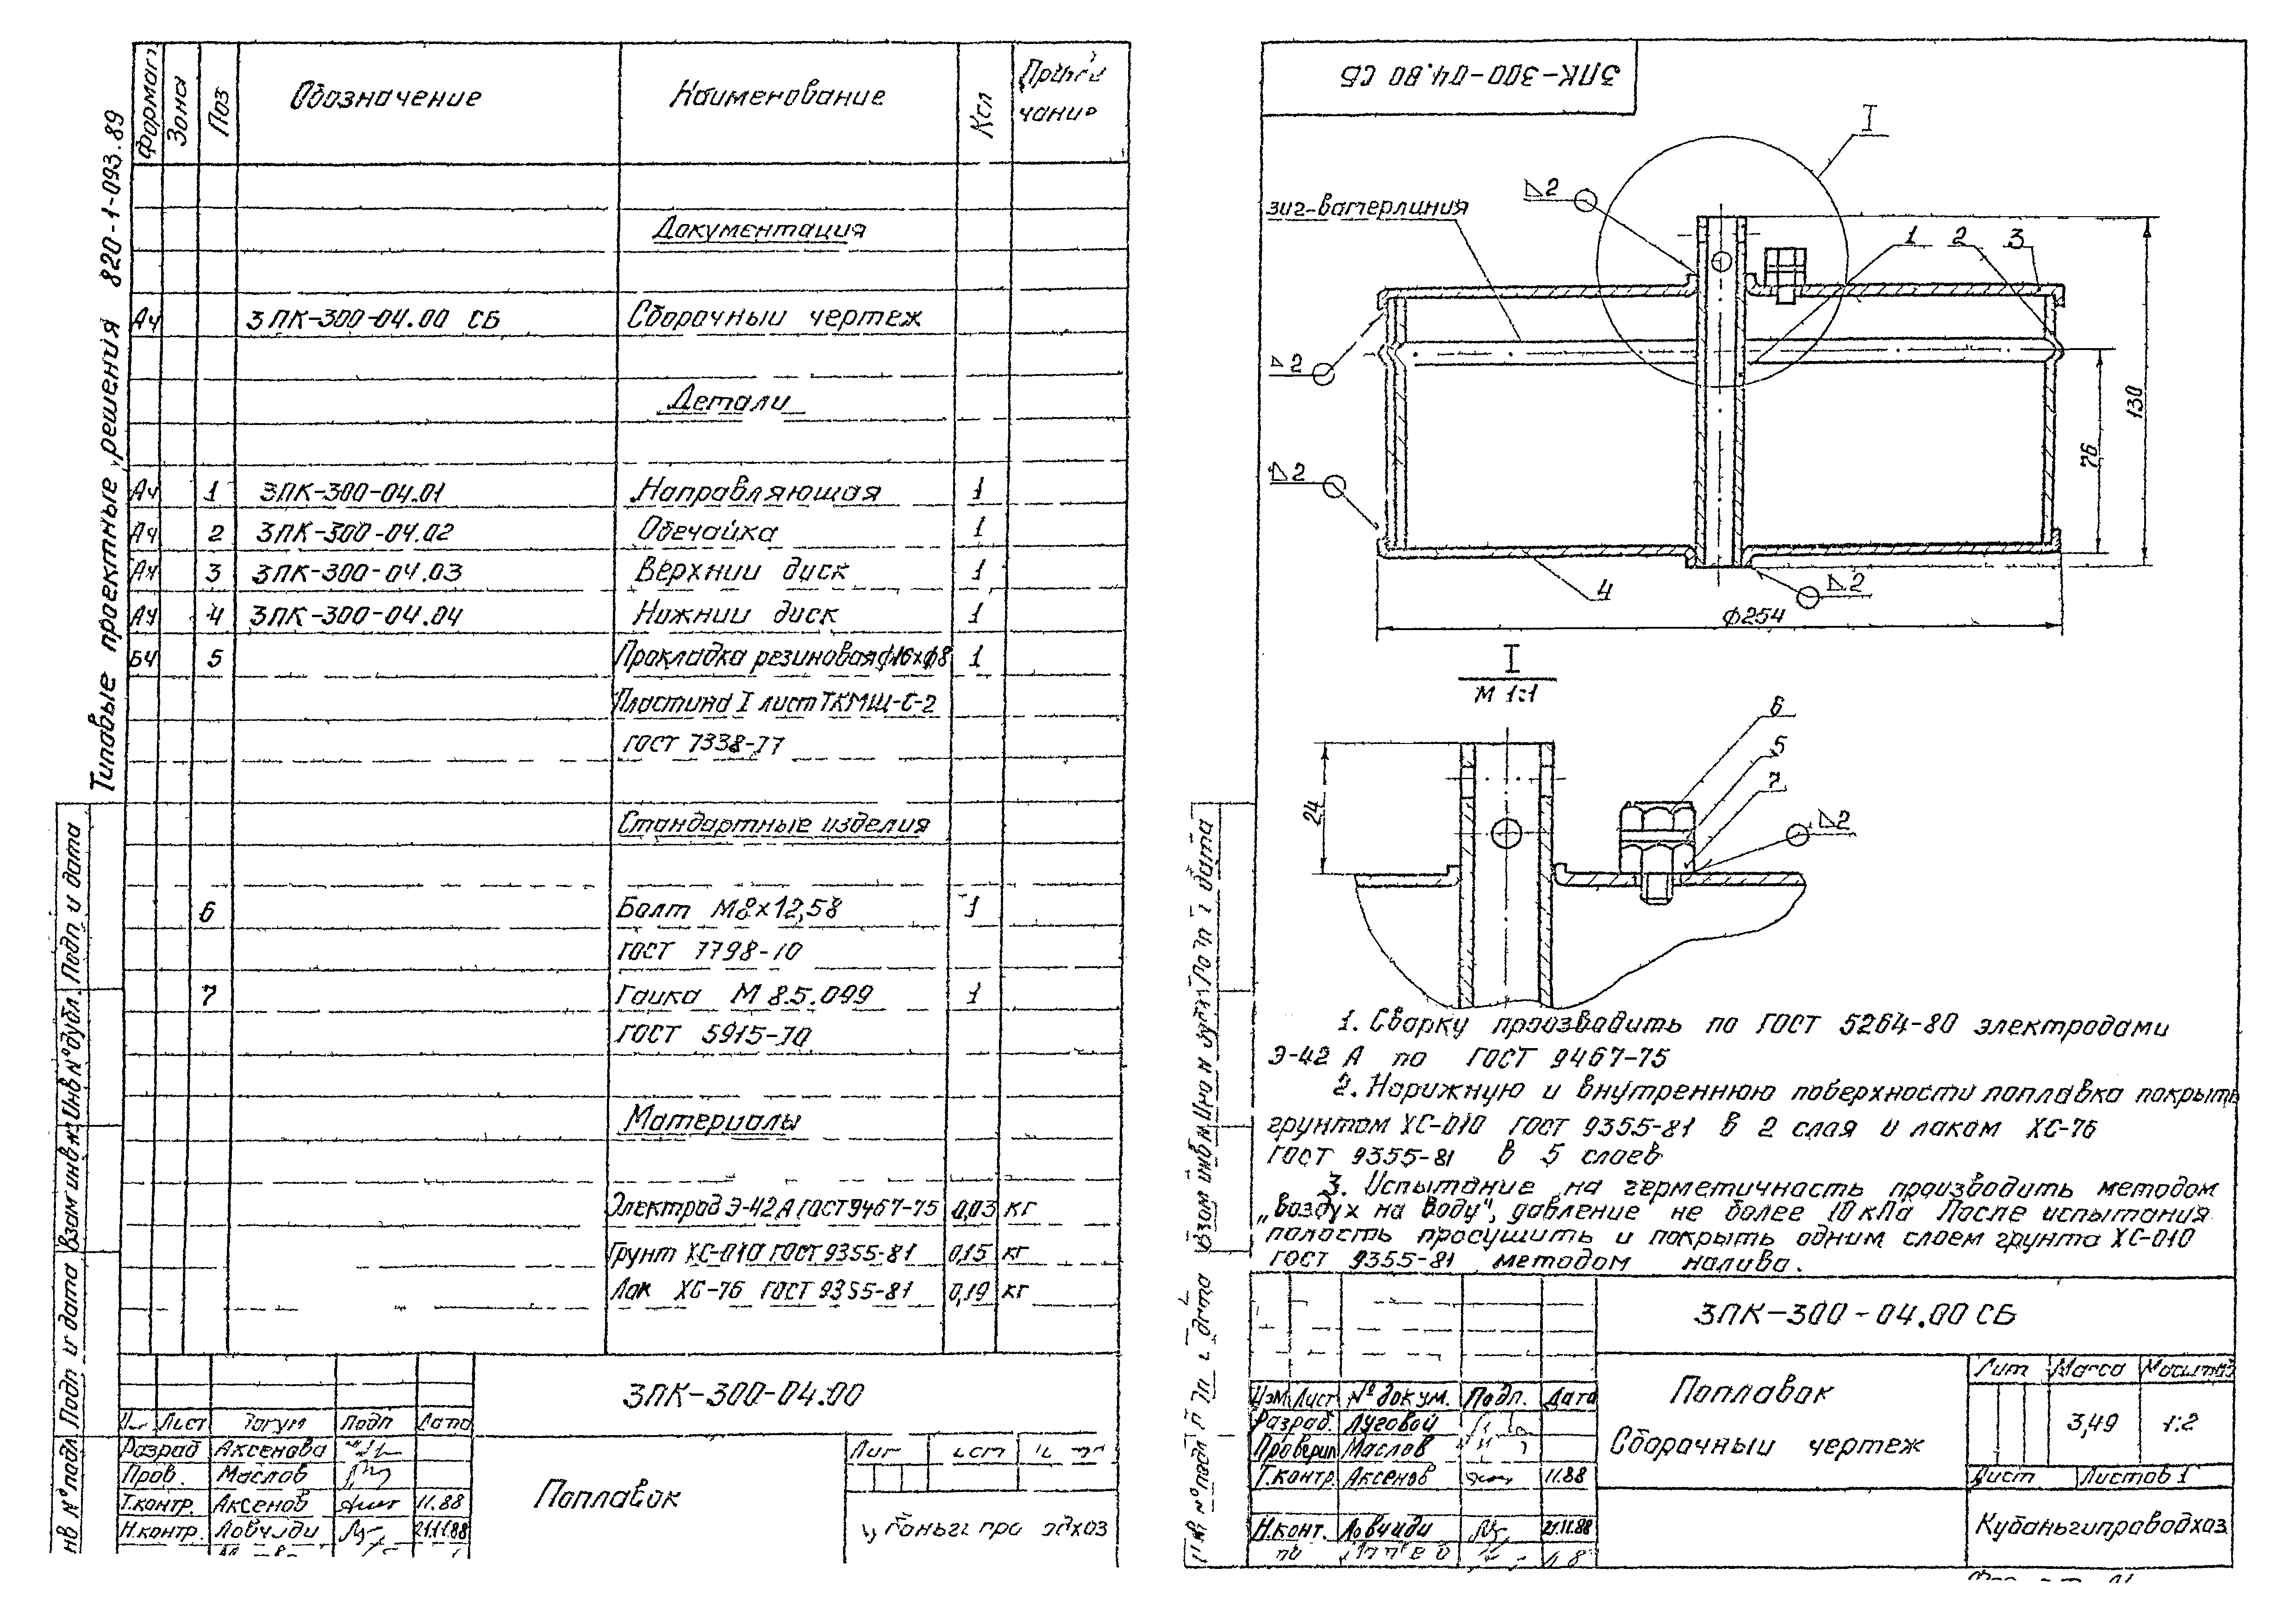 Типовые проектные решения 820-1-093.89
Формат
Зона
Поз
Обозначение
Наименование
Кол
Приме
чание
Документация
А4 ЗПК-300-04.00 СБ Сборочный чертеж
Детали
А4 1 ЗПК-300-04.01 Направляющая 1
А4 2 ЗПК-300-04.02 Обечайка 1
А4 3 ЗПК-300-04.03 Верхний диск 1
А4 4 ЗПК-300-04.04 Нижний диск 1
БЧ 5 Прокладка резиновая ф16хф8 1
Пластина I лист ТКМЩ-С-2
ГОСТ 7338-77
Стандартные изделия
6 Болт М8х12,58 1
ГОСТ 7798-70
7 Гайка М 8.5.099 1
ГОСТ 5915-70
Материалы
Электрод Э-42А ГОСТ 9467-75 0,03 кг
Грунт ХС-010 ГОСТ 9355-81 0,15 кг
Лак ХС-76 ГОСТ 9355-81 0,19 кг
Подп и дата
Инв №дубл.
Взам инв №
Подп и дата
нв № подл
ЗПК-300-04.00
Лист Подп Дата
Разраб Аксенова
Пров. Маслов
Т.контр. Аксенов 11.88
Н.контр. Ловчиди 21.11.88
Поплавок
Лит
ЗПК-300-04.80 СБ
I
Δ2
зиг-ватерлиния
1 2 3
Δ2
130
76
Δ2
4
Δ2
ф254
I
М 1:1
6
5
7
24
Δ2
1. Сварку производить по ГОСТ 5264-80 электродами
Э-42 А по ГОСТ 9467-75
2. Нарижную и внутреннюю поверхности поплавка покрыть
грунтом ХС-010 ГОСТ 9355-81 в 2 слая и лаком ХС-76
ГОСТ 9355-81 в 5 слоев
3. Испытание на герметичность производить методом
„Воздух на воду", давление не более 10кПа После испытания
полость просушить и покрыть одним слоем грунта ХС-010
ГОСТ 9355-81 методом налива.
ЗПК-300-04.00 СБ
Изм Лист № докум. Подп. Дата
Разраб. Луговой
Проверил Маслов
Т.контр. Аксенов 11.88
Н.конт. Ловчиди 21.11.88
Поплавок
Сборочный чертеж
Лит Масса Масштаб
3,49 1:2
Лист Листов 1
Кубаньгипроводхоз